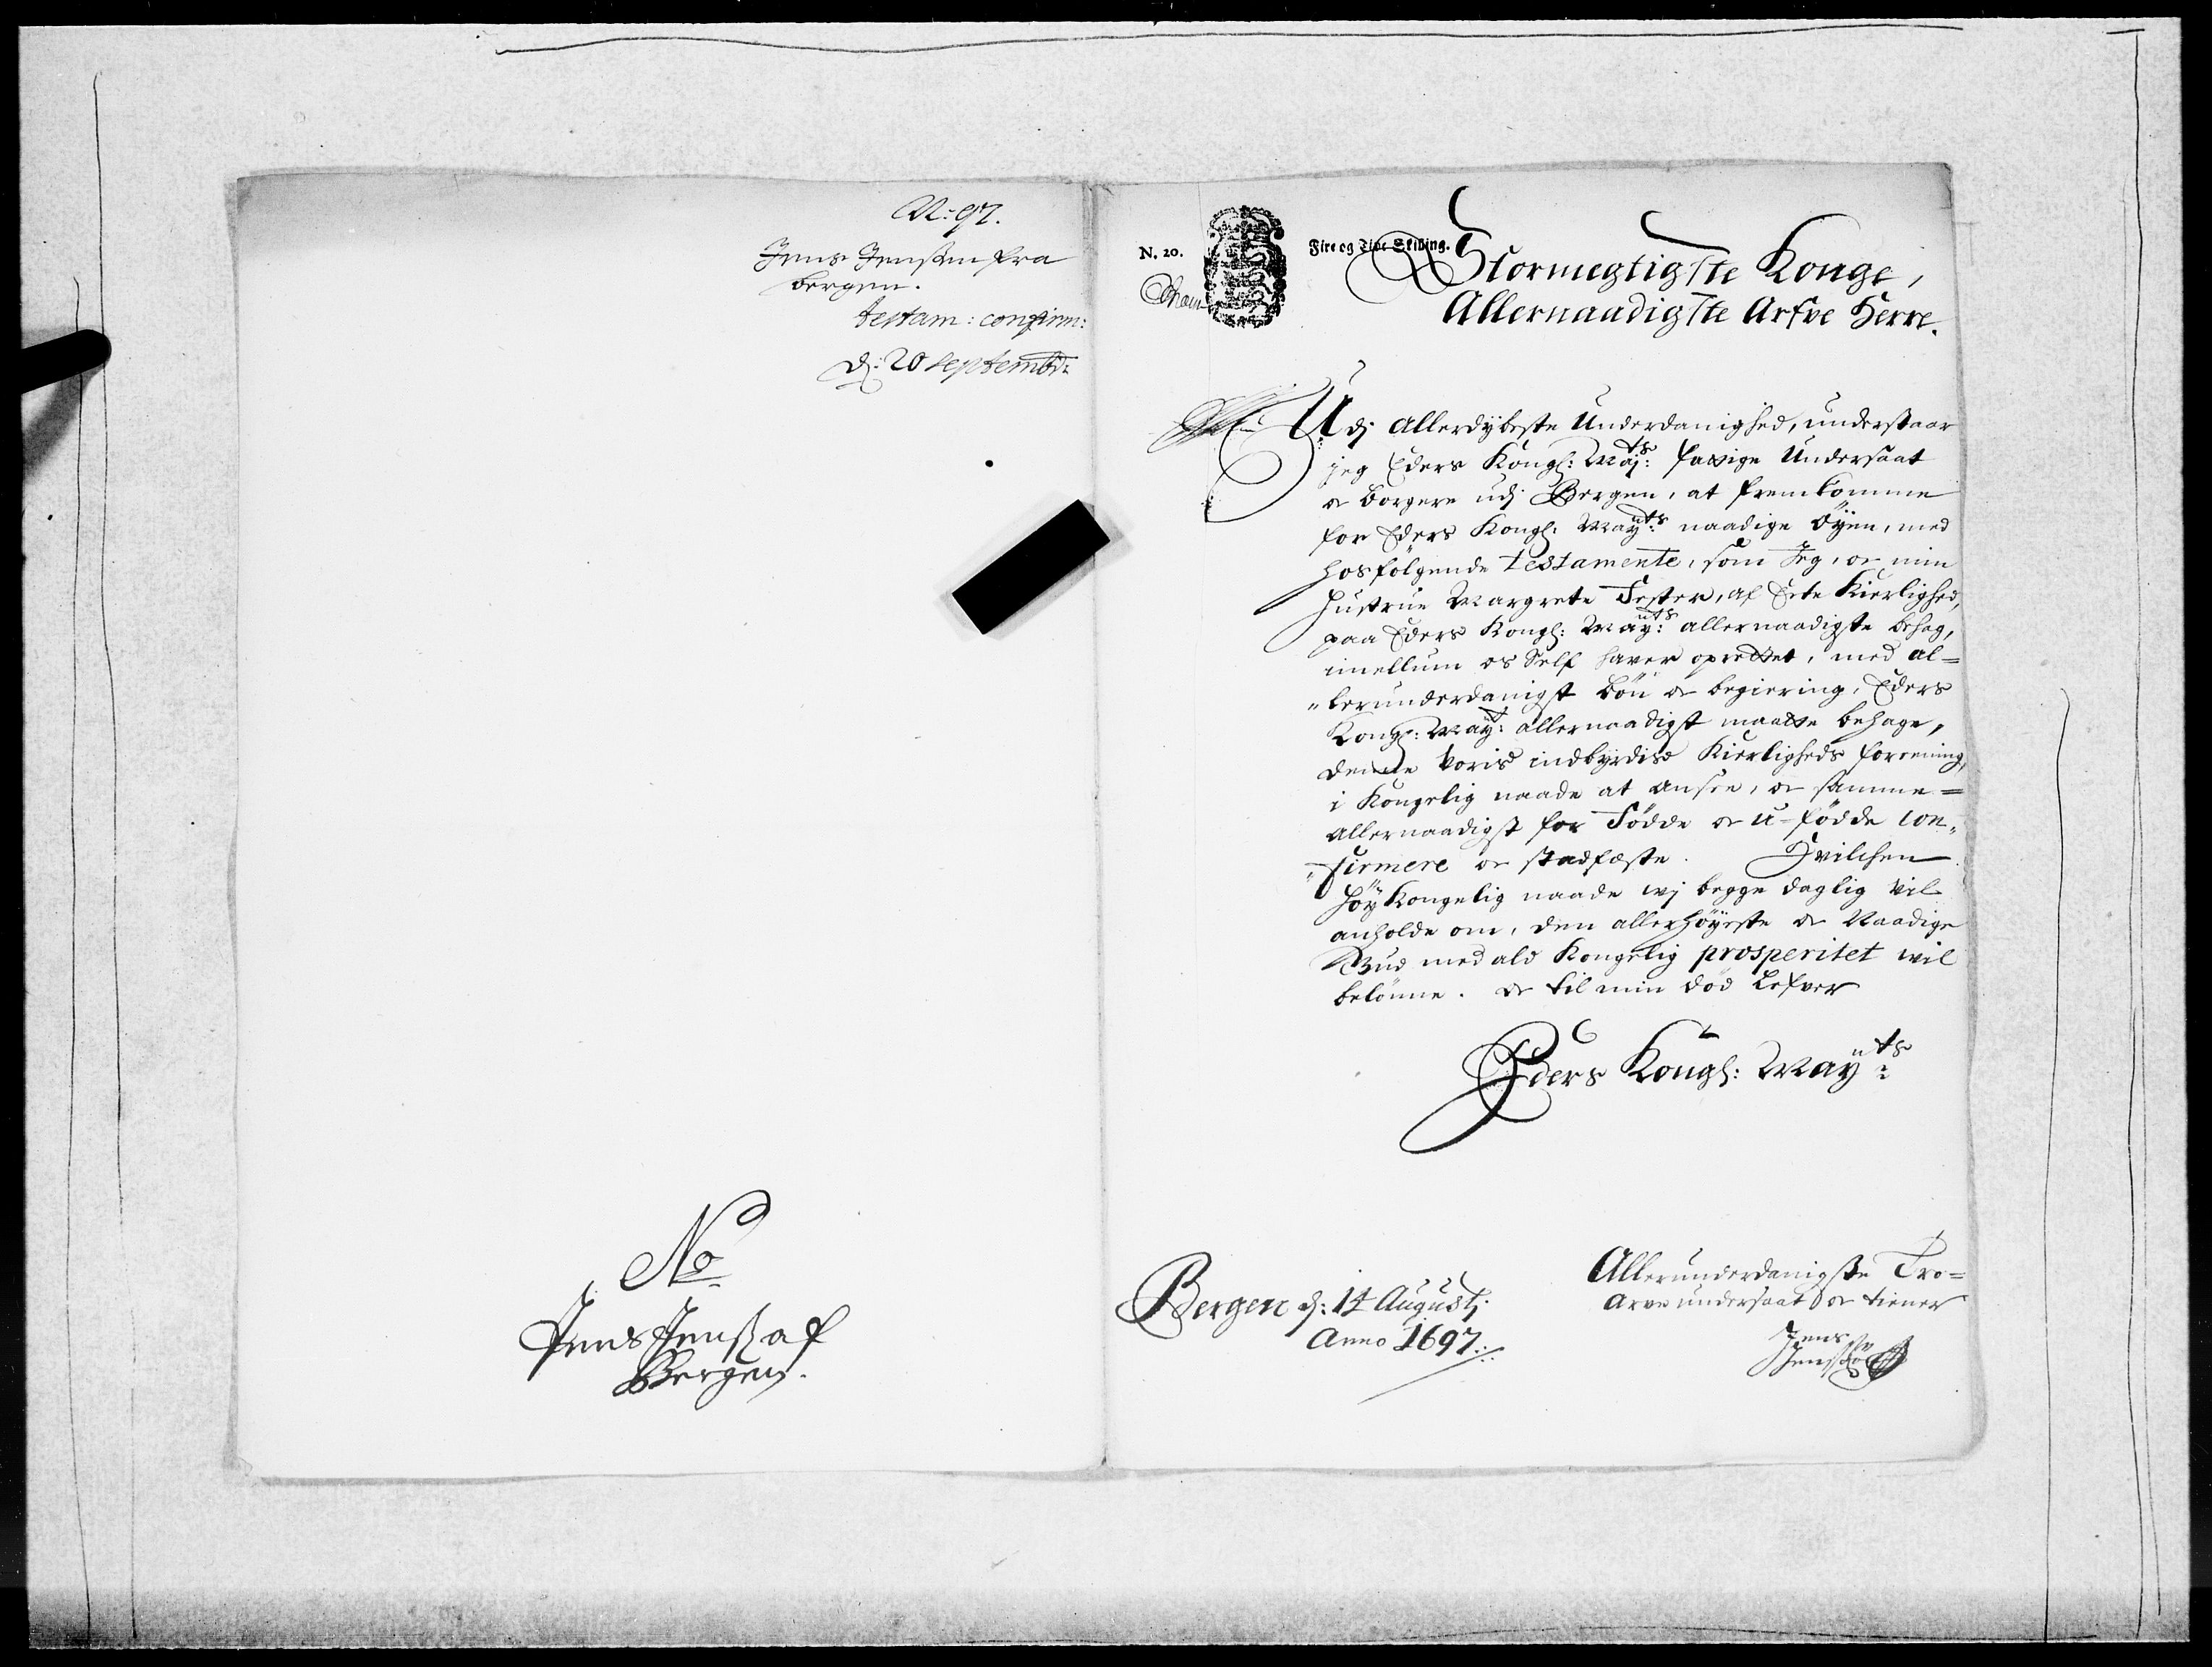 N: 97.
Jens Jenssen fra
bergen.
testam: confirm:
d: 20 septembr:
No
Jens Jenss af
Bergen.
N. 20.
Fire og Tive Skilling.
Stormegtigste Konge,
Allernaadigste Arfve Herre.
Udj allerdybeste Underdanighed, understaar
jeg Eders Kongl: Maj:ts fattige Undersaat
oc borgere udj Bergen, at fremkomme
for Eders Kongl: May:ts naadige Öyen, med
hosfölgende testamente, som Jeg, oc min
Hustrue Margrete Fester, af Ecte Kierlighed,
paa Eders Kongl: May:ts allernaadigste behag,
imellum os Self hafver oprettet, med al=
lerunderdanigst bön oc begiering, Eders
Kongl: May:t allernaadigst maatte behage,
denne voris indbyrdise Kierligheds forrening,
i Kongelig naade at ansee, oc samme=
allernaadigst for Födde oc u-födde con„
„firmere oc stadfæste. Hvilchen
höy Kongelig naade wj begge daglig vil
anholde om, den allerhöyeste oc Naadige
Gud med ald Kongelig prosperitet wil
belönne. oc til min död Lefver
Eders Kongl: May:ts
Bergen d: 14 Augustj
Anno 1697
Allerunderdanigste Tro=
Arve undersaat oc tiener
Jens
Jenssön